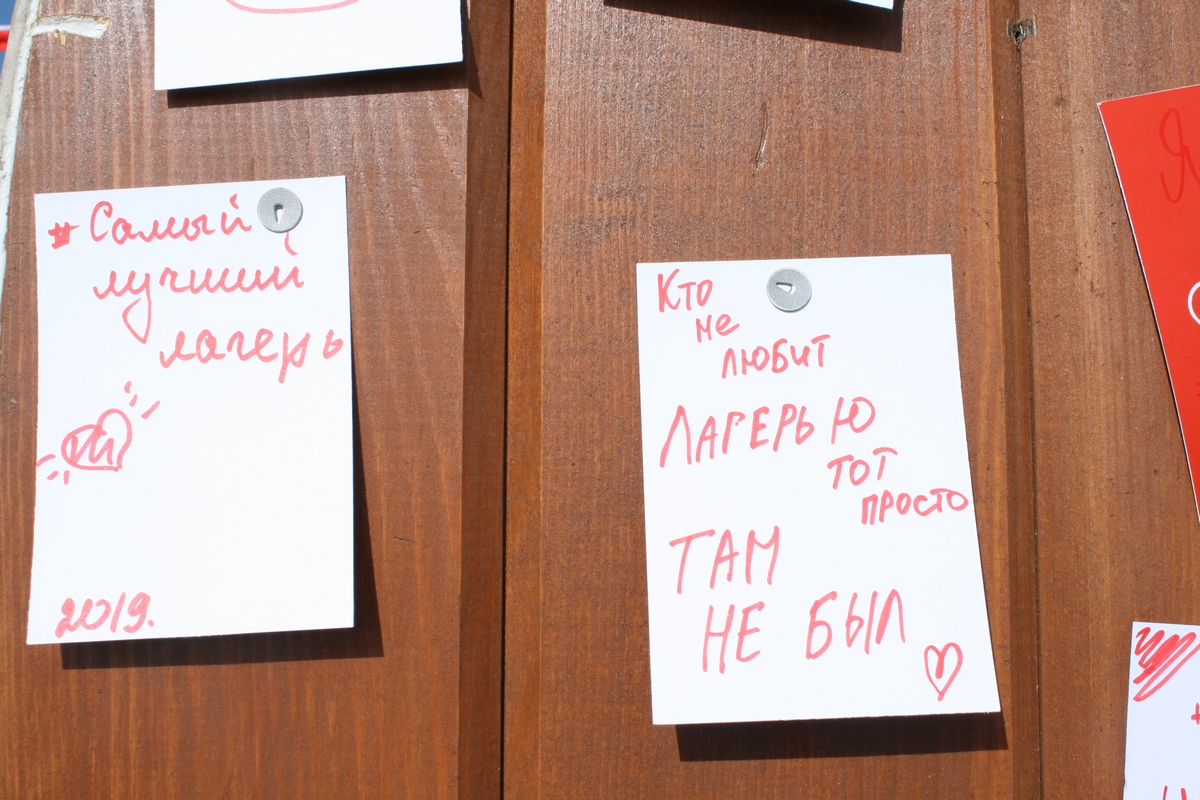 #Самый
лучший
лагерь
2019.
Кто
не
любит
ЛАГЕРЬ Ю
ТОТ
ПРОСТО
ТАМ
НЕ БЫЛ
Я